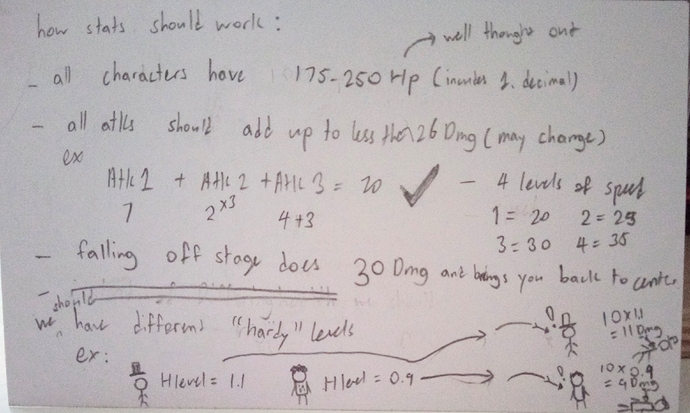 how stats should work:
well thought out
- all characters have 175-250 Hp (includes 1. decimal)
- all atks should add up to less then 26 Dmg (may change)
ex
Atk 1 + Atk 2 + Atk 3 = 20 ✓
7 2 x3 4+3
- 4 levels of speed
1 = 20 2 = 25
3 = 30 4 = 35
- falling off stage does 30 Dmg and brings you back to center
-
we should have different "hardy" levels
ex:
H level = 1.1
10 x 1.1
= 11 Dmg
H level = 0.9
10 x 0.9
= 9 Dmg